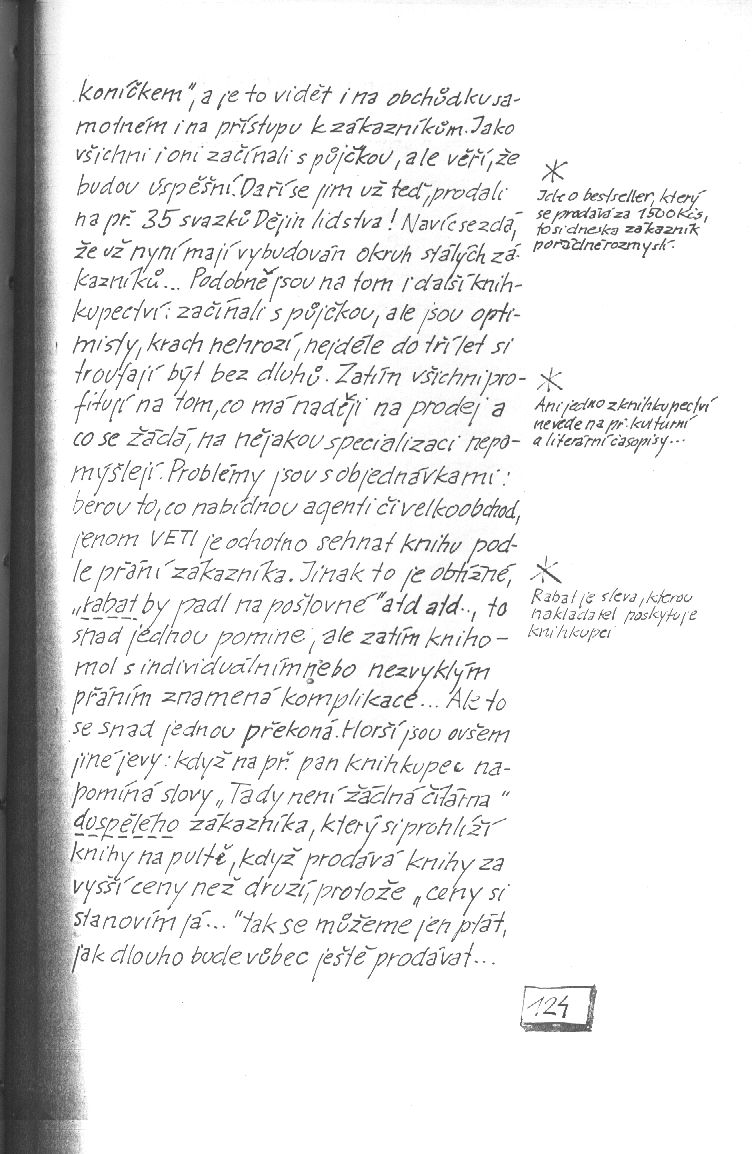 koníčkem", a je to vidět i na obchůdku sa-
motném i na přístupu k zákazníkům. Jako
všichni i oni začínali s půjčkou, ale věří, že
budou úspěšní. Daří se jim už teď, prodali
na př. 35 svazků Dějin lidstva! Navíc se zdá,
že už nyní mají vybudován okruh stálých zá-
kazníků... Podobně jsou na tom i další knih-
kupectví: začínali s půjčkou, ale jsou opti-
misty, krach nehrozí, nejdéle do tří let si
troufají být bez dluhů. Zatím všichni pro-
fitují na tom, co má naději na prodej a
co se žádá, na nějakou specializaci nepo-
mýšlejí. Problémy jsou s objednávkami:
berou to, co nabídnou agenti či velkoobchod,
jenom VETI je ochotno sehnat knihu pod-
le přání zákazníka. Jinak to je obtížné,
„rabat by padl na poštovné" atd atd.., to
snad jednou pomine, ale zatím kniho-
mol s individuálním nebo nezvyklým
přáním znamená komplikace... Ale to
se snad jednou překoná. Horší jsou ovšem
jiné jevy: když na př. pan knihkupec na-
pomíná slovy „Tady není žádná čítárna"
dospělého zákazníka, který si prohlíží
knihy na pultě, když prodává knihy za
vyšší ceny než druzí, protože „ceny si
stanovím já..." tak se můžeme jen ptát,
jak dlouho bude vůbec ještě prodávat...
* Jde o bestseller, který
se prodává za 1500 Kčs,
to si dneska zákazník
pořádně rozmyslí.
* Ani jedno z knihkupectví
nevede na př. kulturní
a literární časopisy...
* Rabat je sleva, kterou
nakladatel poskytuje
knihkupci
124